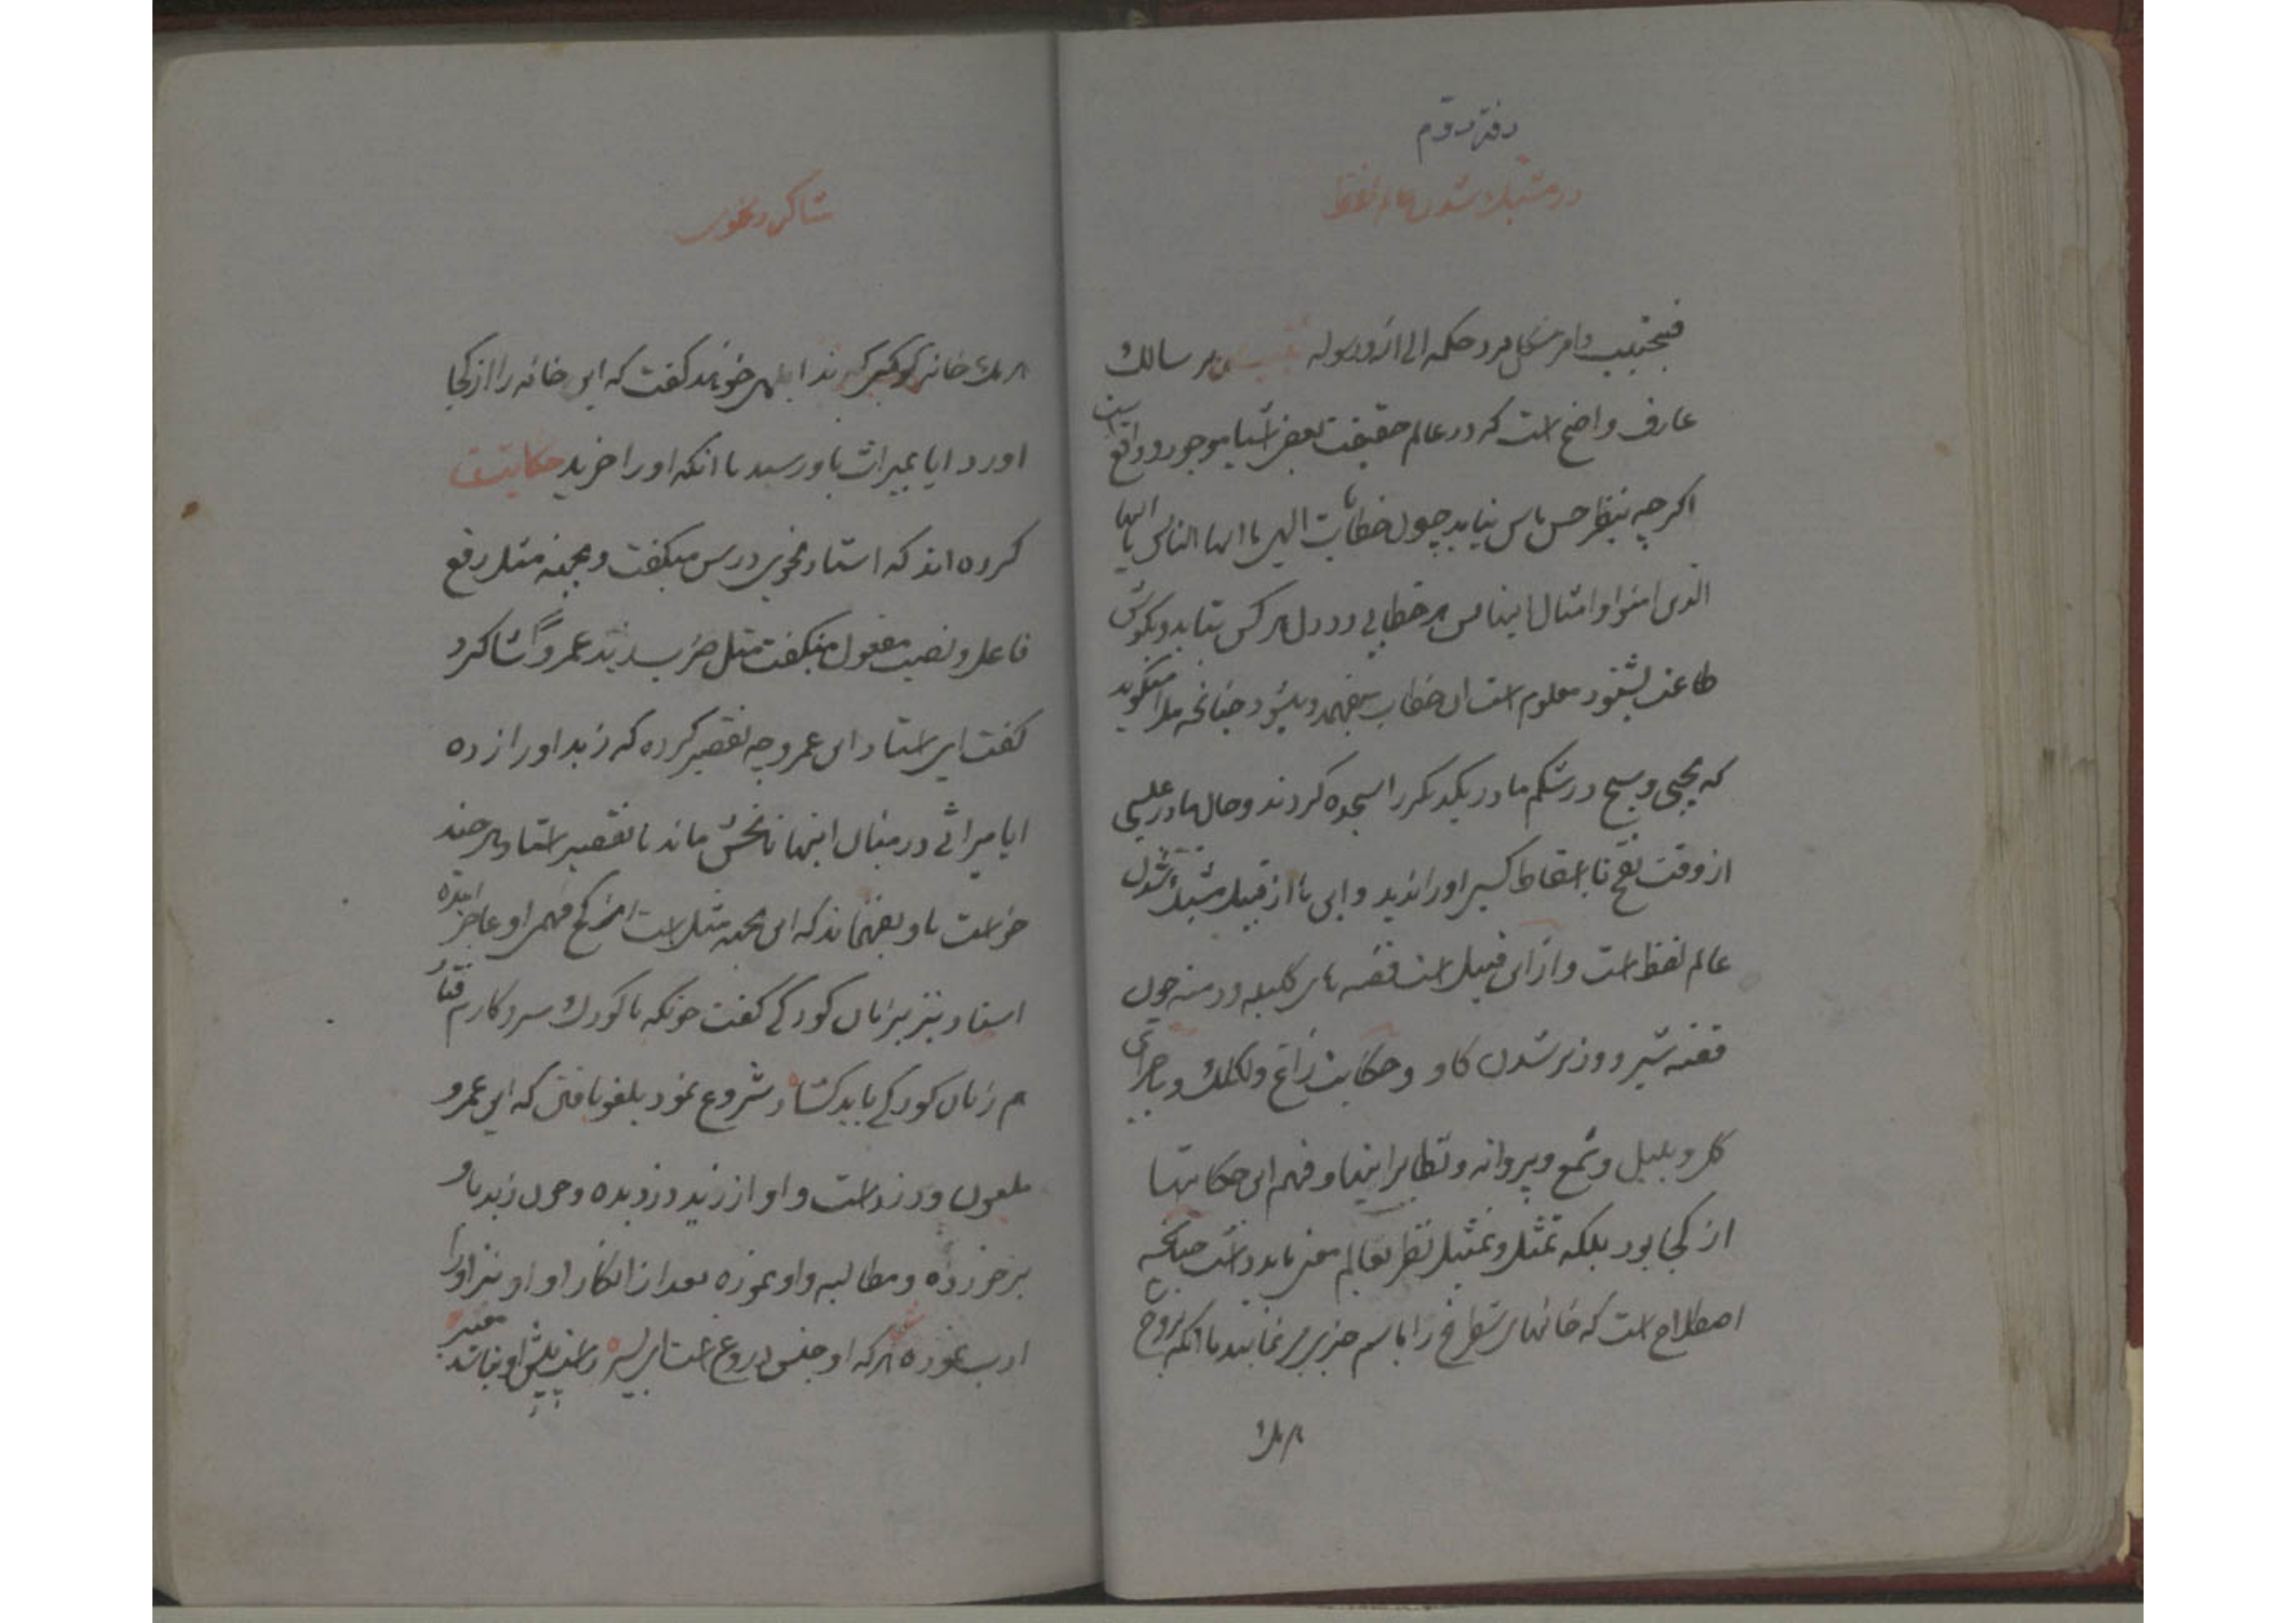 دفتر دوم
در مشبك شدن عالم لفظ
فیجتنب وامر مشکل یرد حکمه الی الله ورسوله بر سالك
عارف واضح است که در عالم حقیقت بعض اشیا موجود و واقع است
اکرچه بنظر حس ناس نیاید چون خطابات الهی یا ایها الناس یا ایها
الذین امنوا و امثال اینها پس هر خطابی در دل هر کس بتابد و بکوش
طاعت بشنود معلوم است ان خطاب بفهمد و بشنود چنانچه ملا میکوید
که یحیی و مسیح در شکم مادر یکدیکر را سجده کردند و حال مادر عیسی
از وقت نفخ تا اسقاط کسی او را ندید و این ها از قبیل مشبك شدن
عالم لفظ است و از این قبیل است قصه های کلیله و دمنه چون
قصه شیر و وزیر شدن کاو و حکایت زاغ و لکلك و ماجرای
کل و بلبل و شمع و پروانه و نظایر اینها و فهم این حکایتها
از کجا بود بلکه تمثل و تمثیل نظر بعالم معنی باید داشت چنانچه
اصطلاح است که خانهای شطرنج را باسم چیزی می نمایند با انکه بروج
هر یك
هر یك خانه کوکبی کویند ابلهی خونمند کفت که این خانه را از کجا
شاکرد نحوی
اورد ایا بمیراث باو رسید یا انکه او را خرید حکایت
کرده اند که استاد نحوی درس میکفت و بجهة مثل رفع
فاعل و نصب مفعول میکفت مثل ضرب زید عمروا شاکرد
کفت ای استاد این عمرو چه تقصیر کرده که زید او را زده
ایا میراثی در میان اینها نابخش ماند یا تقصیر استاد هر چند
خواست باو بفهماند که این بجهة مثل است از کج فهمی او عاجز امده
استاد نیز بزبان کودکی کفت چونکه با کودك سر و کارم فتاد
هم زبان کودکی باید کشاد شروع نمود بلغو بافتن که این عمرو
ملعون و دزد است و او از زید دزدیده و چون زید باو
برخورده و مطالبه و او نموده بعد از انکار او او نیز او را
ادب نموده هر که او جنس دروغ است ای پسر راست پیش او نباشد معتبر